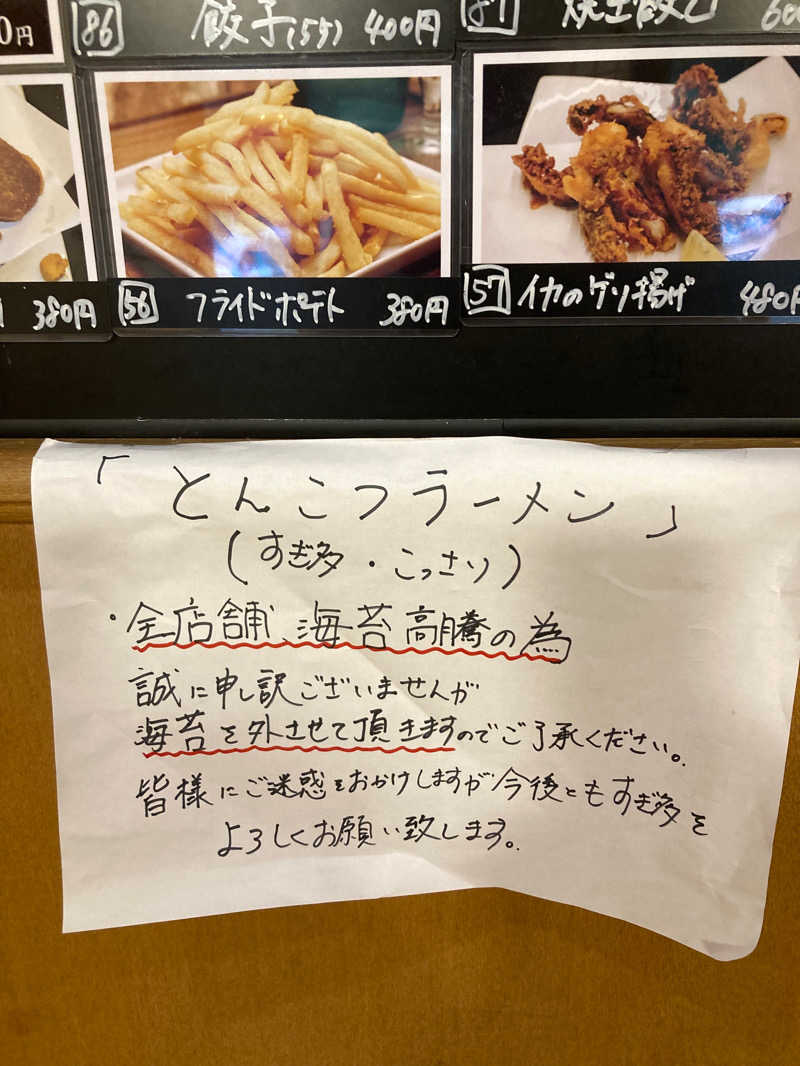 0円
86 餃子(5ケ) 400円
87
380円
56 フライドポテト 380円
57 イカのゲソ揚げ 480円
「とんこつラーメン」
(すぎ多・こっさり)
・全店舗、海苔高騰の為
誠に申し訳ございませんが
海苔を外させて頂きますのでご了承ください。
皆様にご迷惑をおかけしますが今後ともすぎ多を
よろしくお願い致します。